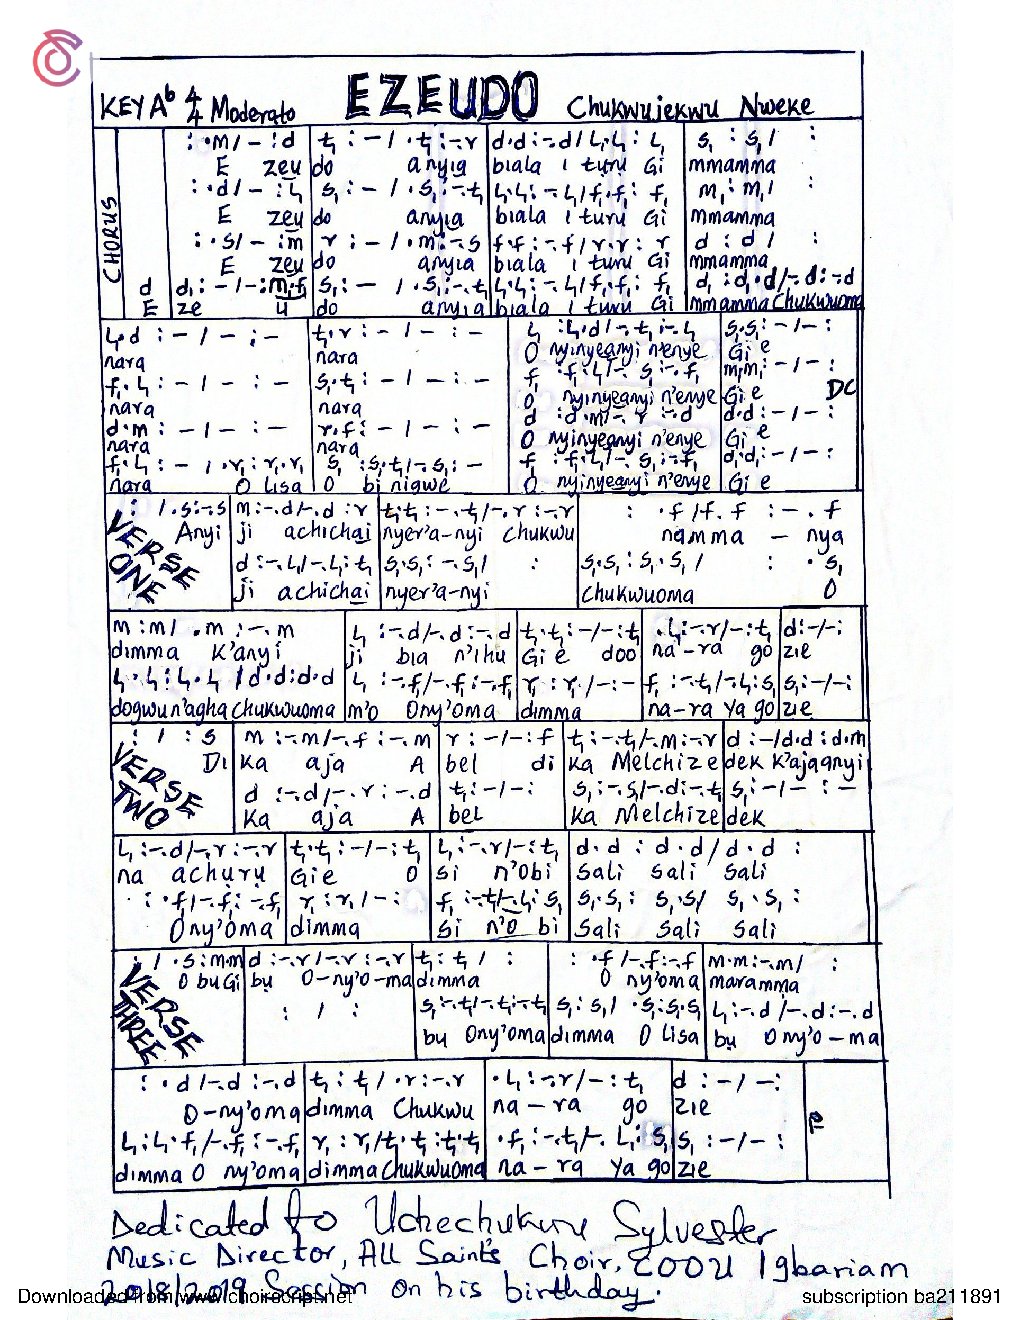 EZEUDO
KEY Ab 4/4 Moderato Chukwujekwu Nweke
CHORUS
: ·m/ - :d | t, : - / ·t, :-·r | d·d :-·d/ l,·l, : l, | s, : s, / :
E zeu do anyia biala i turu Gi mmamma
: ·d/ - :l, | s, : - / ·s, :-·t, | l,·l, :-·l,/ f,·f, : f, | m, : m, / :
E zeu do anyia biala i turu Gi mmamma
: ·s/ - :m | r : - / ·m :-·s | f·f :-·f/ r·r : r | d : d / :
E zeu do anyia biala i turu Gi mmamma
d | d, : - / - :m,·f, | s, : - / ·s, :-·t, | l,·l, :-·l,/ f,·f, : f, | d, : d,·d/-·d :-·d
E ze u do anyia biala i turu Gi mmamma Chukwuoma
l,·d : - / - : - | t,·r : - / - : - | l, :l,·d/-·t, :-·l, | s,·s, : - / - :
nara nara O nyinyeanyi n'enye Gi e
f,·l, : - / - : - | s,·t, : - / - : - | f, :f,·l,/-·s, :-·f, | m,·m, : - / - :
nara nara O nyinyeanyi n'enye Gi e DC
d·m : - / - : - | r·f : - / - : - | d :d·m/-·r :-·d | d·d : - / - :
nara nara O nyinyeanyi n'enye Gi e
f,·l, : - / ·r, : r,·r, | s, :s,·t,/-·s, : - | f, :f,·l,/-·s, :-·f, | d,·d, : - / - :
nara O Lisa O bi nigwe O nyinyeanyi n'enye Gi e
VERSE ONE
: / ·s :-·s | m :-·d/-·d :r | t,·t, :-·t,/-·r :-·r | : ·f /f·f :-·f
Anyi ji achichai nyer'a-nyi Chukwu namma - nya
d :-·l,/-·l, :t, | s,·s, :-·s,/ : | s,·s, : s,·s, / : ·s,
ji achichai nyer'a-nyi Chukwuoma O
m :m/ ·m :-·m | l, :-·d/-·d :-·d | t,·t, :-/- :t, | ·l, :-·r/- :t, | d :-/- :
dimma K'anyi ji bia n'ihu Gi e doo na-ra go zie
l,·l, :l,·l, /d·d :d·d | l, :-·f,/-·f, :-·f, | r, : r, /- :- | f, :-·t,/-·l, :s, | s, :-/- :
dogwu n'agha Chukwuoma m'o Ony'oma dimma na-ra ya go zie
VERSE TWO
: / : s | m :-·m/-·f :-·m | r :-/- :f | t, :-·t,/-·m :-·r | d :-/d·d :d·m
Di Ka aja A bel di Ka Melchize dek K'ajaanyi
d :-·d/-·r :-·d | t, :-/- : | s, :-·s,/-·d :-·t, | s, :-/- : -
Ka aja A bel Ka Melchize dek
l, :-·d/-·r :-·r | t,·t, :-/- :t, | l, :-·r/- :t, | d·d : d·d / d·d :
na achuru Gi e O si n'obi Sali Sali Sali
: ·f,/-·f, :-·f, | r, : r, / - : | f, :-·t,/-·l, :s, | s,·s, : s,·s,/ s,·s, :
Ony'oma dimma si n'o bi Sali Sali Sali
VERSE THREE
: / ·s :m·m | d :-·r/-·r :-·r | t, : t, / : | : ·f /-·f :-·f | m·m :-·m/ :
O bu Gi bu O-ny'o-ma dimma O ny'oma maramma
: / : | s, :-·t,/-·t, :-·t, | s, : s, / ·s, :s,·s, | l, :-·d /-·d :-·d
bu Ony'oma dimma O Lisa bu Ony'o-ma
: ·d /-·d :-·d | t, : t, / ·r :-·r | ·l, :-·r/- :t, | d :-/- :
O-ny'oma dimma Chukwu na-ra go zie
l, :l,·f,/-·f, :-·f, | r, : r, /t,·t, :t,·t, | ·f, :-·t,/-·l, :s, | s, :-/- :
dimma O ny'oma dimma Chukwuoma na-ra ya go zie
Dedicated to Uchechukwu Sylvester
Music Director, All Saint's Choir, COOU Igbariam
2018/2019 Session on his birthday.
Downloaded from www.choirscript.net subscription ba211891